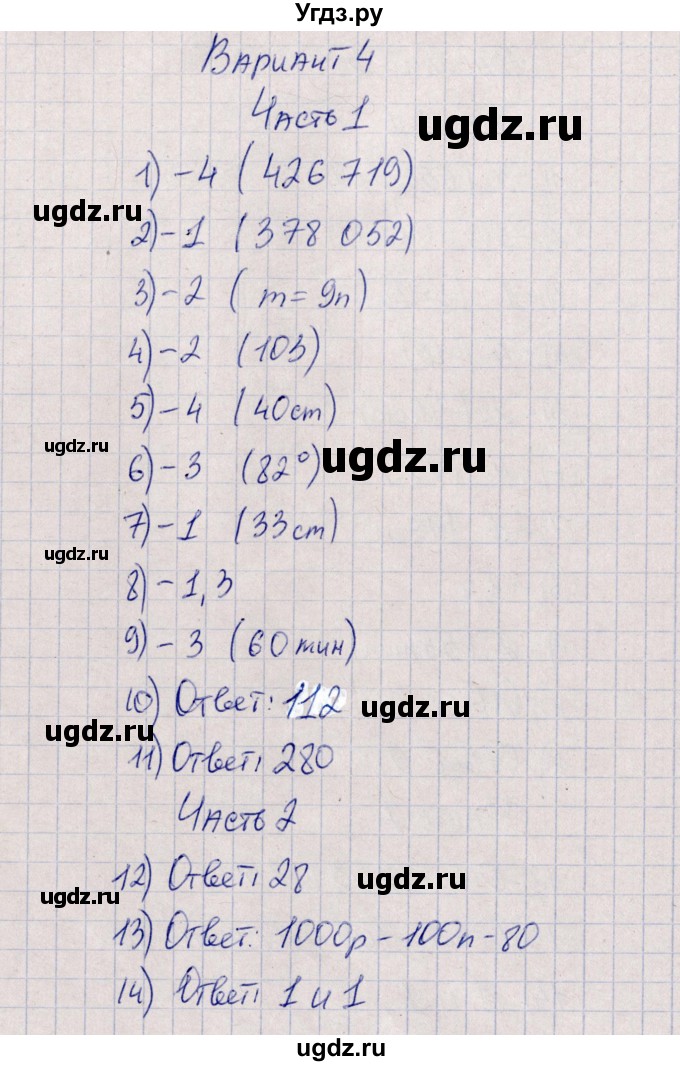 Угдз.ру
Вариант 4
Часть 1
ugdz.ru
1) - 4 (426 719)
ugdz.ru
2) - 1 (378 052)
3) - 2 (m = 9n)
4) - 2 (103)
5) - 4 (40 cm)
ugdz.ru
6) - 3 (82°)
ugdz.ru
7) - 1 (33 cm)
ugdz.ru
8) - 1, 3
9) - 3 (60 мин)
10) Ответ: 112
ugdz.ru
ugdz.ru
11) Ответ: 280
Часть 2
12) Ответ: 28
ugdz.ru
ugdz.ru
13) Ответ: 1000p - 100n - 80
14) Ответ: 1 и 1
ugdz.ru